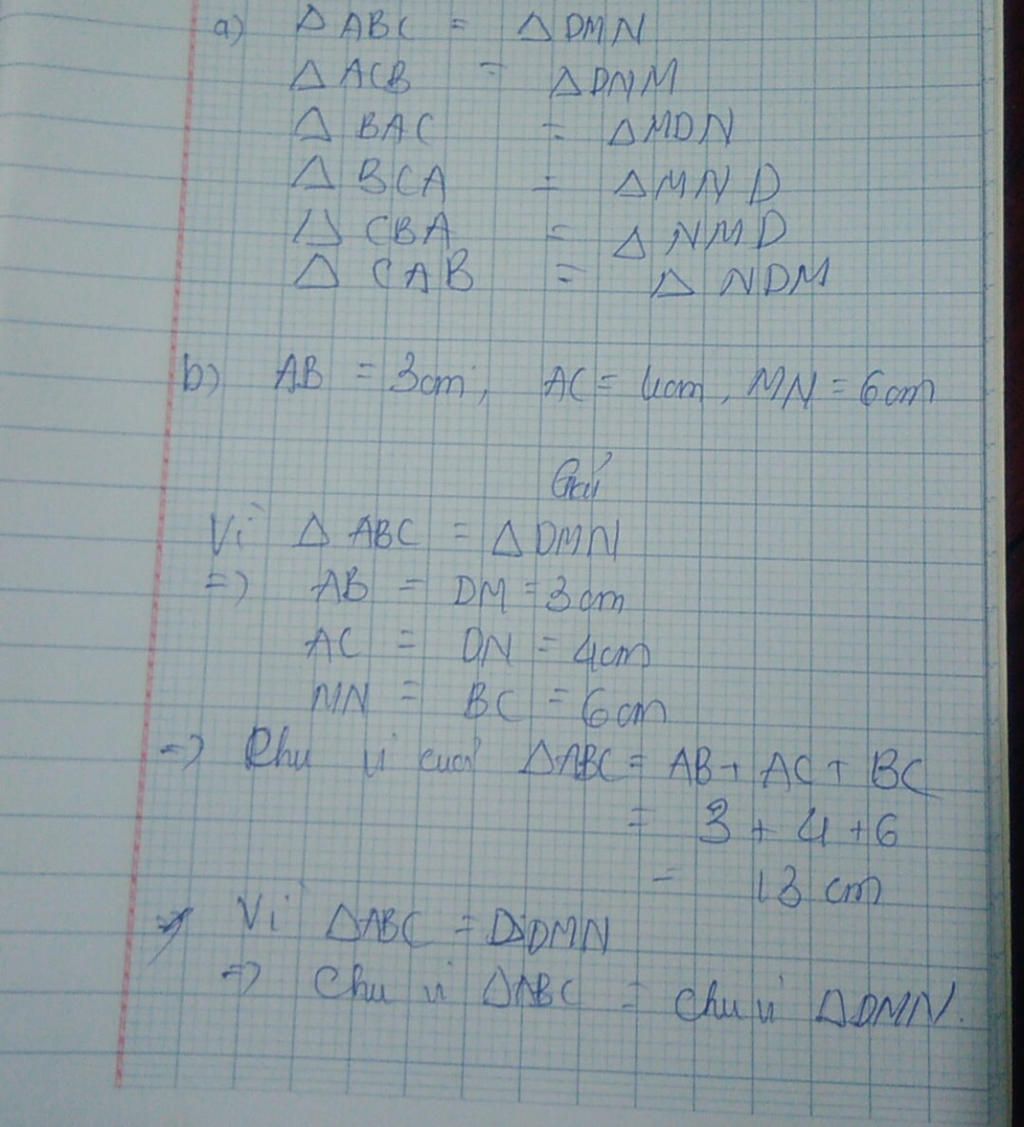 a) Δ ABC = Δ DMN
Δ ACB = Δ DNM
Δ BAC = Δ MDN
Δ BCA = Δ MND
Δ CBA = Δ NMD
Δ CAB = Δ NDM
b) AB = 3cm, AC = 4cm, MN = 6cm
Giải
Vì Δ ABC = Δ DMN
=> AB = DM = 3cm
AC = DN = 4cm
MN = BC = 6cm
=> Chu vi của ΔABC = AB + AC + BC
= 3 + 4 + 6
= 13 cm
Vì ΔABC = ΔDMN
=> Chu vi ΔABC = chu vi ΔDMN.